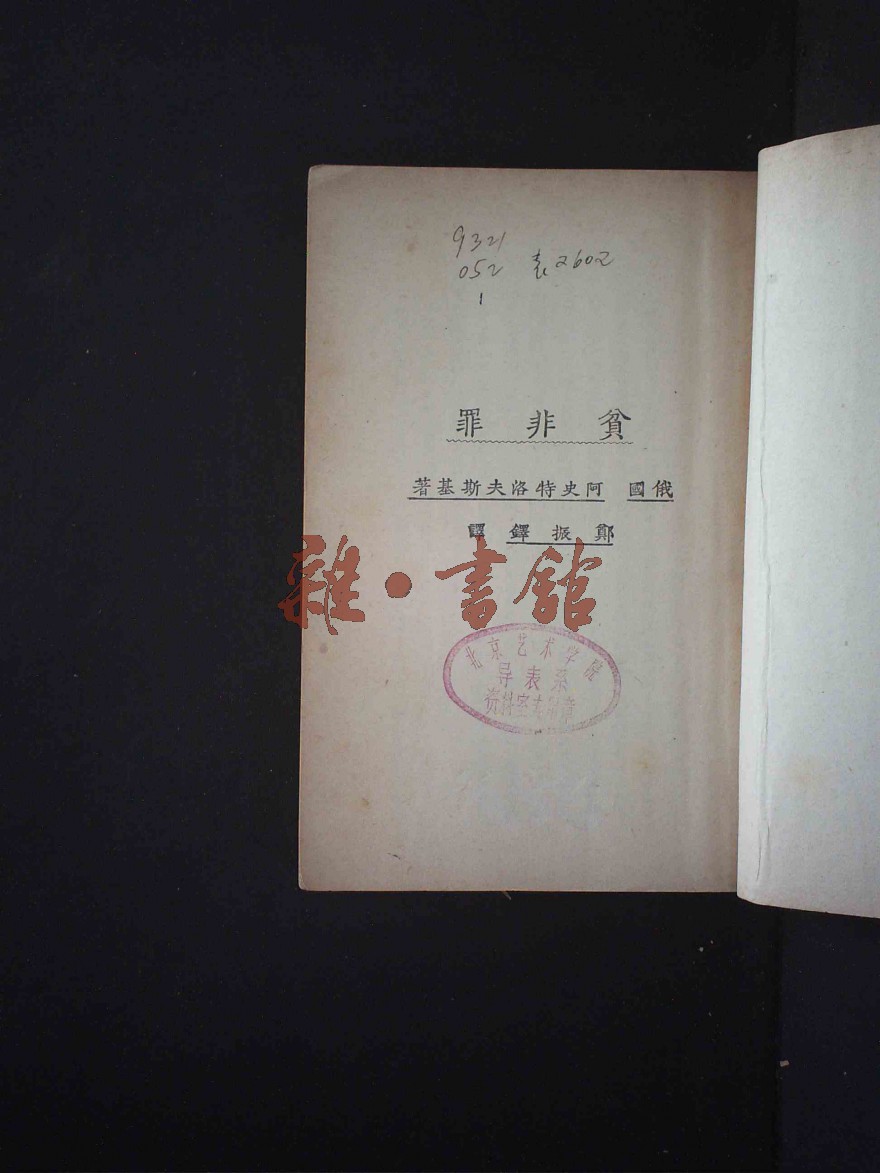 9321
052 表2602
1
貧非罪
俄國 阿史特洛夫斯基著
鄭振鐸譯
雜·書館
北京艺术学院
导表系
资料室专用章